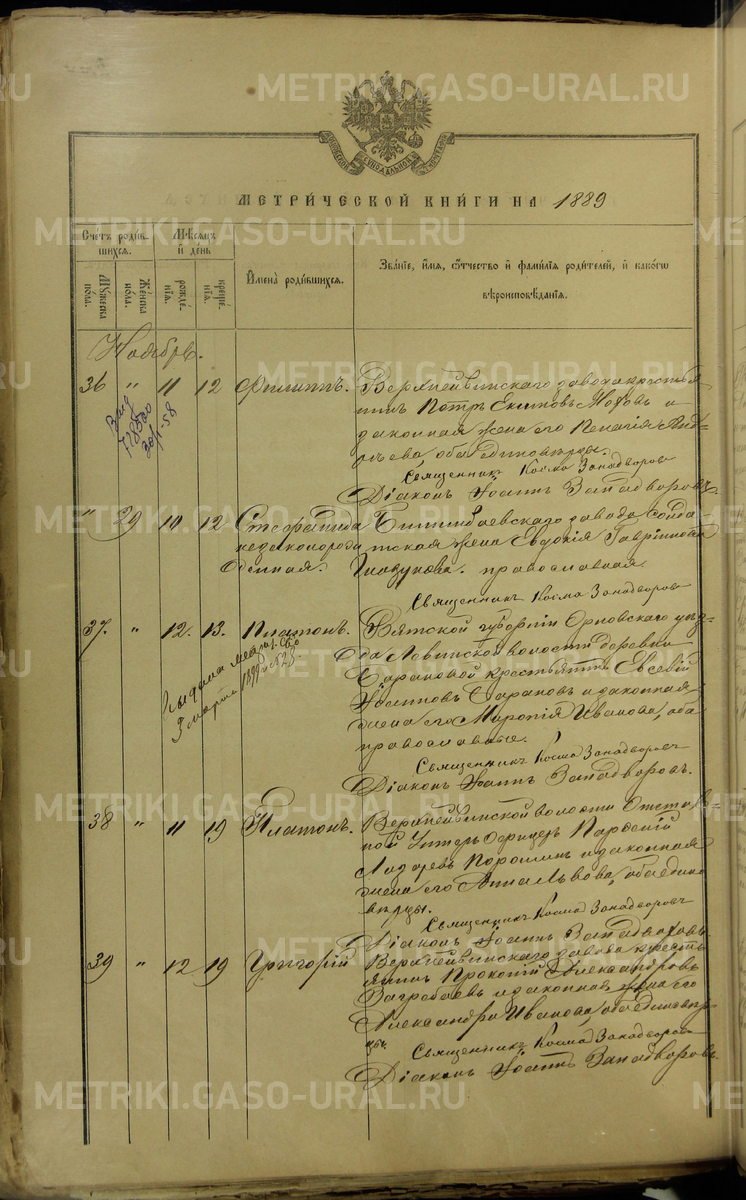 METRIKI.GASO-URAL.RU
МЕТРИ́ЧЕСКОЙ КНИ́ГИ НА 1889
Счетъ роди́в-
шихся.
Мѣсяцъ
и̑ де́нь
Му́жеска
по́ла.
Же́нска
по́ла.
рожде́-
нїѧ.
креще́-
нїѧ.
И̑мена̀ роди́вшихся.
Зва́нїе, и̑́мя, ѻ҆́тчество и̑ фами́лїя роди́телей, и̑ како́гѡ
вѣроисповѣ́данїя.
Ноябрь.
36 " 11 12 Филиппъ.
Верхнейвинскаго завода крестья
нинъ Петръ Екимовъ Моховъ и
законная жена его Пелагія Анд-
рѣева оба единовѣрцы.
Священникъ Косма Западворовъ
Діаконъ Іоаннъ Западворовъ.
" 29 10 12 Стефанида
незаконорож
денная.
Билимбаевскаго завода солда-
тская жена Евдокія Гаврилова
Глазунова. православная
Священникъ Косма Западворовъ
37. " 12. 13. Платонъ.
Выдана
Вятской губерніи Орловскаго уѣз-
да волости деревни
Барановой крестьянинъ Евсевій
Барановъ и законная
жена его Ивановна, оба
православные.
Священникъ Косма Западворовъ
Діаконъ Іоаннъ Западворовъ.
38 " 11 19 Платонъ.
Верхнейвинской волости Отстав-
ной Унтеръ Офицеръ
Лазаревъ и законная
жена его Анна Львова, оба едино
вѣрцы.
Священникъ Косма Западворовъ
Діаконъ Іоаннъ Западворовъ
39 " 12 19 Григорій
Верхнейвинскаго завода кресть
янинъ Прокопій Александровъ
и законная жена его
Александра Иванова, оба единовѣр-
цы.
Священникъ Косма Западворовъ
Діаконъ Іоаннъ Западворовъ.